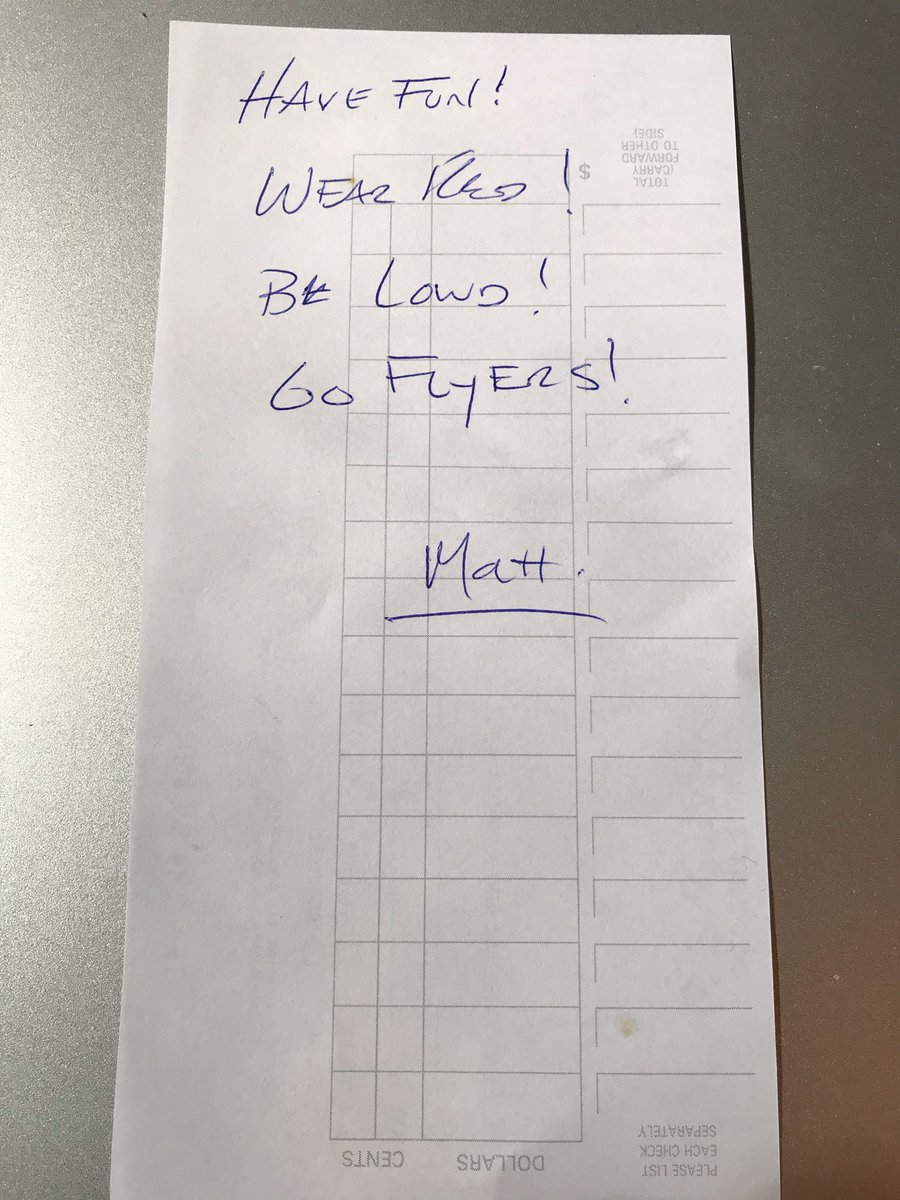 HAVE FUN!
WEAR RED!
BE LOUD!
GO FLYERS!
Matt.
TOTAL
(CARRY
FORWARD
TO OTHER
SIDE)
$
DOLLARS
CENTS
PLEASE LIST
EACH CHECK
SEPARATELY